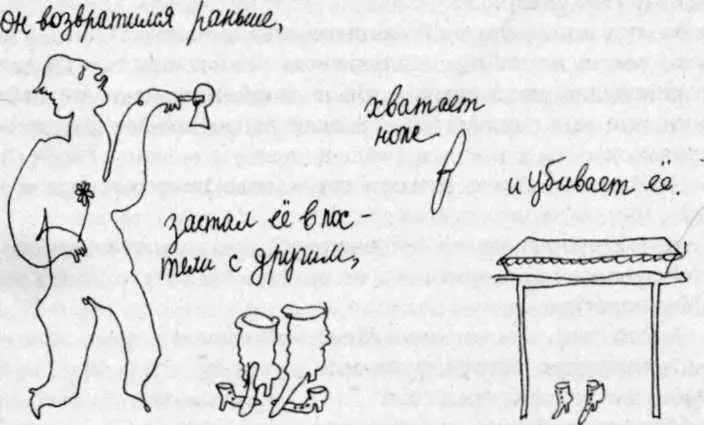 Он возвратился раньше,
застал её в пос
тели с другим,
хватает
нож
и убивает ее.